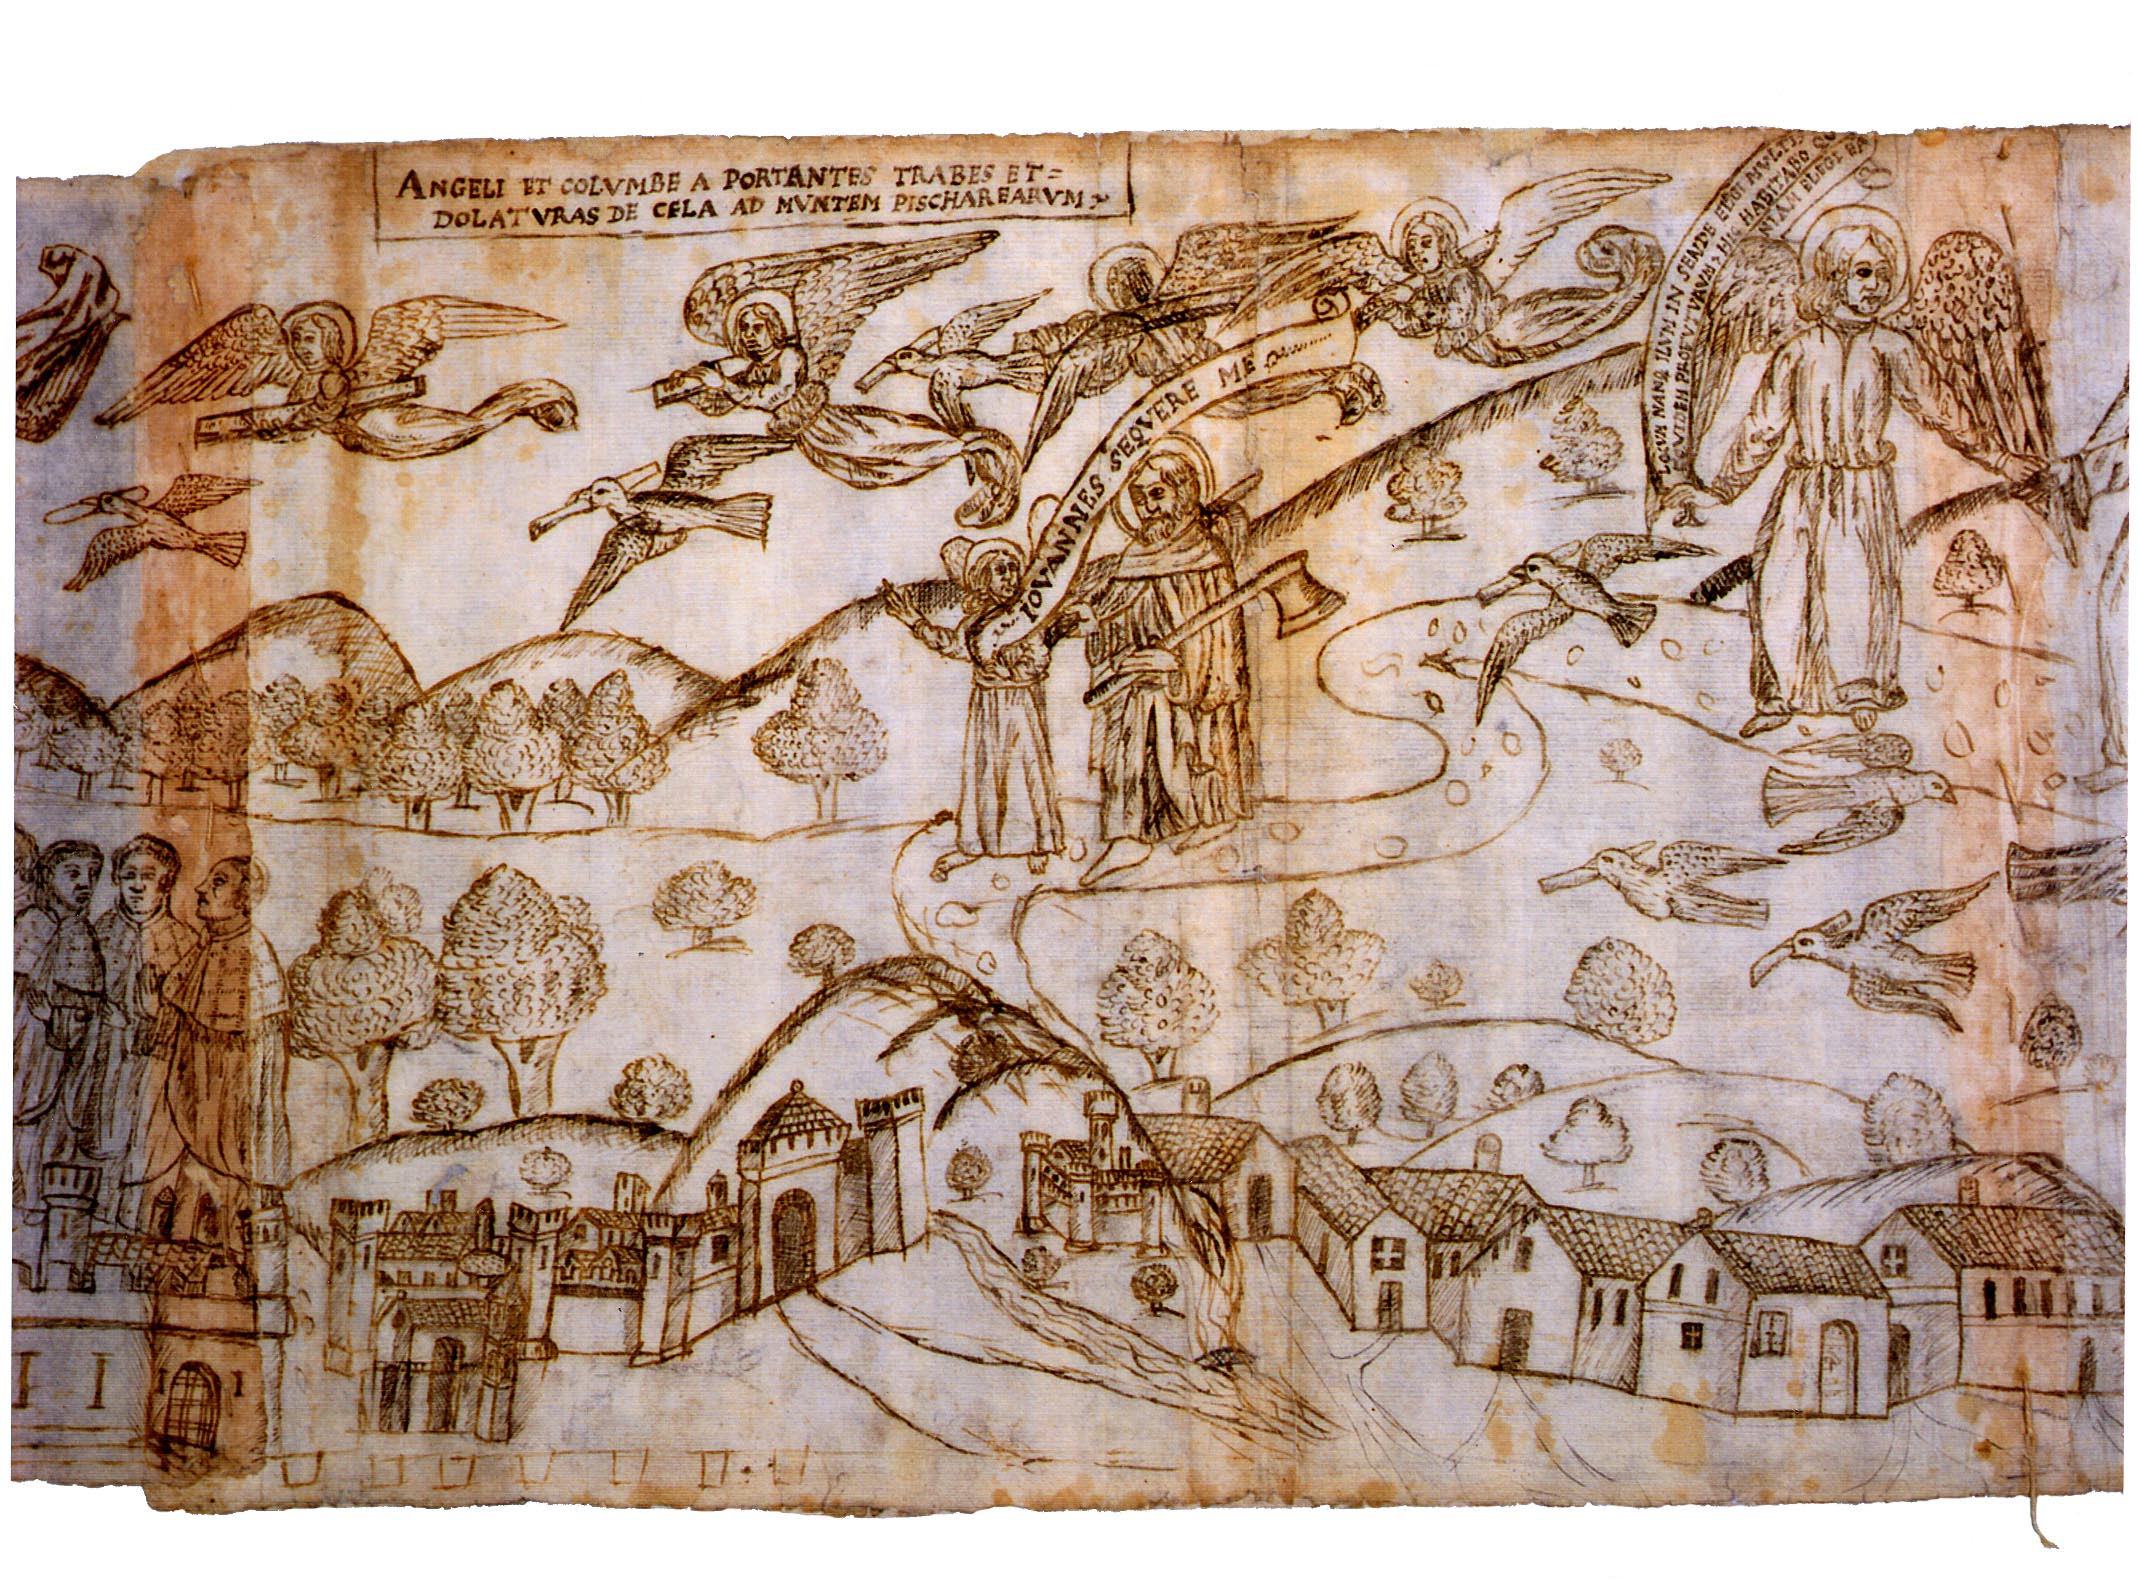 ANGELI ET COLVMBE A PORTANTES TRABES ET=
DOLATVRAS DE CELA AD MVNTEM PISCHAREARVM
IOVANNES SEQVERE ME
LOCVM NANQ ILVM IN SENDE ELEGI MVLTIS
HIC HABITABO QV
NIAM ELEGI EA